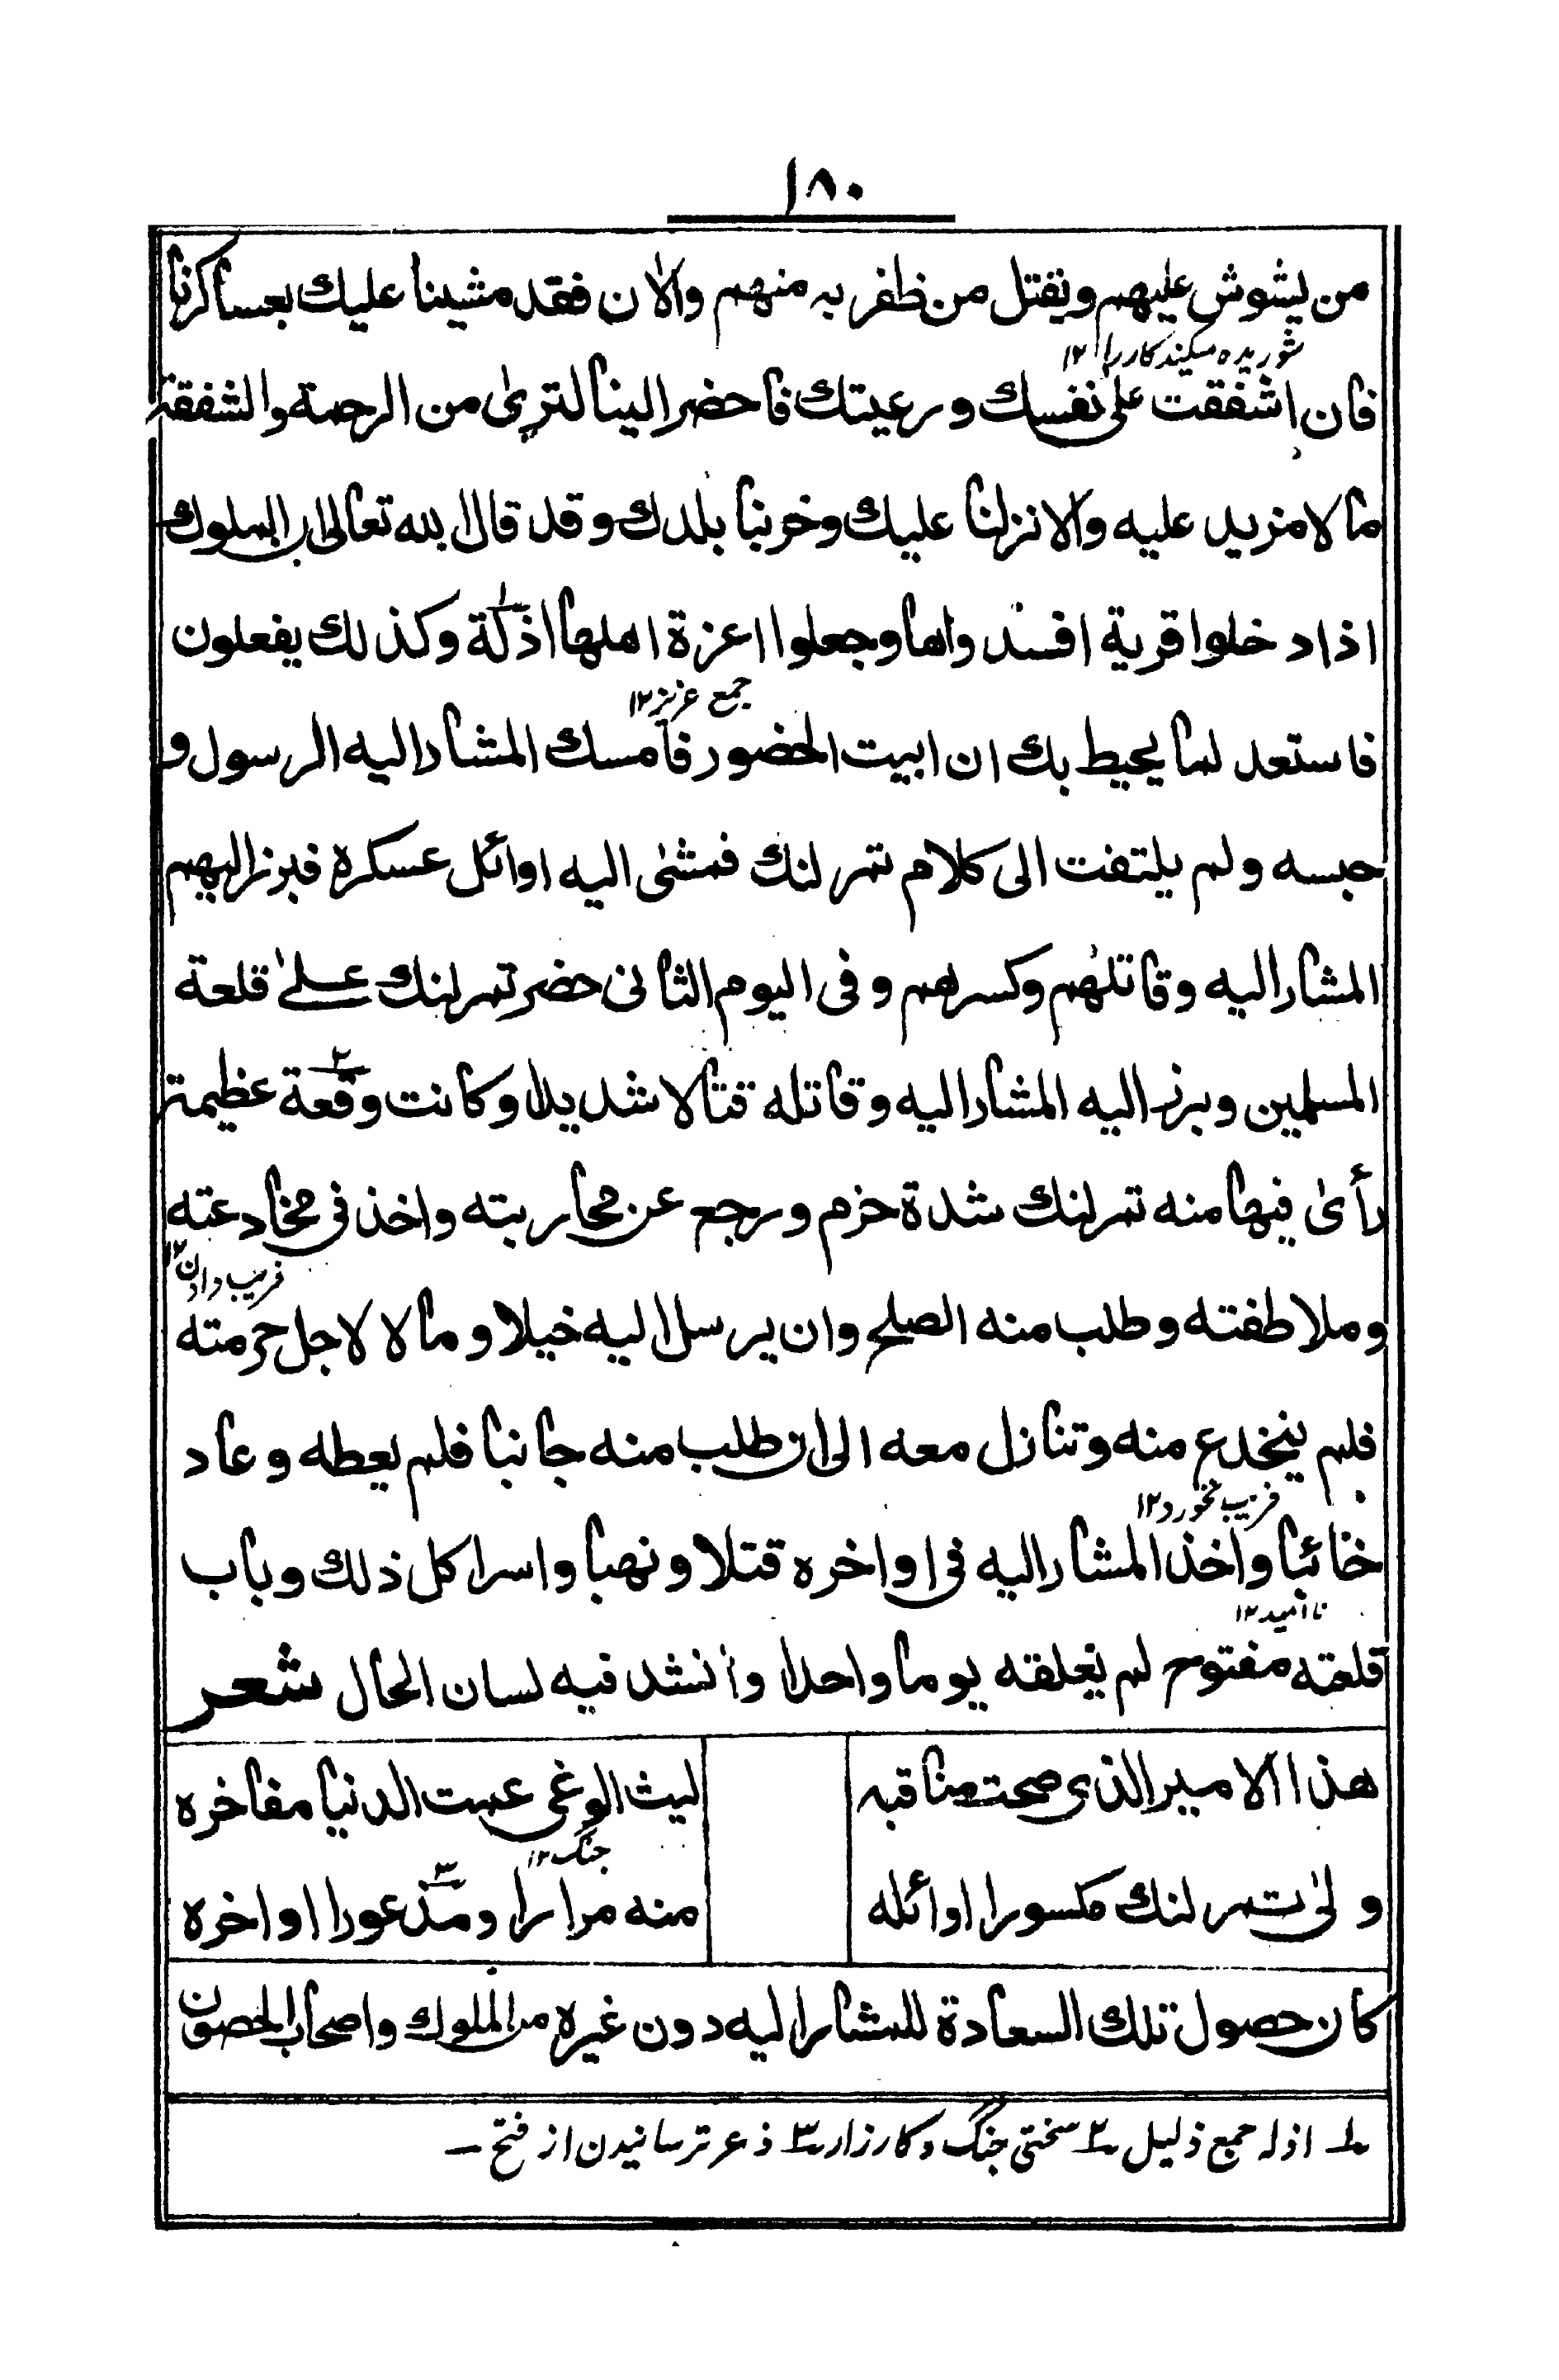 ١٨٠
من يشوش عليهم ويقتل من ظفر به منهم والان فقد مشينا عليك بعساكرنا
شوريده ميكند كار را ١٢
فان اشفقت على نفسك ورعيتك فاحضر الينا لترى من الرحمة والشفقة
ما لا مزيد عليه والا نزلنا عليك وخربنا بلدك وقد قال الله تعالى ان الملوك
اذا دخلوا قرية افسدواها وجعلوا اعزة اهلها اذلة وكذلك يفعلون
جمع عزيز ١٢
فاستعد لما يحيط بك ان ابيت الحضور فامسك المشار اليه الرسول و
حبسه ولم يلتفت الى كلام تمرلنك فمشى اليه اوائل عسكره فبرز اليهم
المشار اليه وقاتلهم وكسرهم وفى اليوم الثانى حضر تمرلنك على قلعة
المسلمين وبرز اليه المشار اليه وقاتله قتالا شديدا وكانت وقعة عظيمة
رأى فيها منه تمرلنك شدة حزم ورجع عن محاربته واخذ فى مخادعته
فريب دادن ١٢
وملاطفته وطلب منه الصلح وان يرسل اليه خيلا ومالا لاجل حرمته
فلم ينخدع منه وتنازل معه الى ان طلب منه جانبا فلم يعطه وعاد
فريب نخورد ١٢
خائبا واخذ المشار اليه فى اواخره قتلا ونهبا واسرا كل ذلك وباب
نا اميد ١٢
قلعته مفتوح لم يغلقه يوما واحدا وانشد فيه لسان الحال شعر
هذا الامير الذى صحت مناقبه ليث الوغى عمت الدنيا مفاخره
جنگ ١٢
ولى تمرلنك مكسورا اوائله منه مرارا ومذعورا اواخره
كان حصول تلك السعادة للمشار اليه دون غيره من الملوك واصحاب الحصون
١ اذله جمع ذليل ٢ سختى جنگ و كارزار ٣ ذعر ترسانيدن از فتح